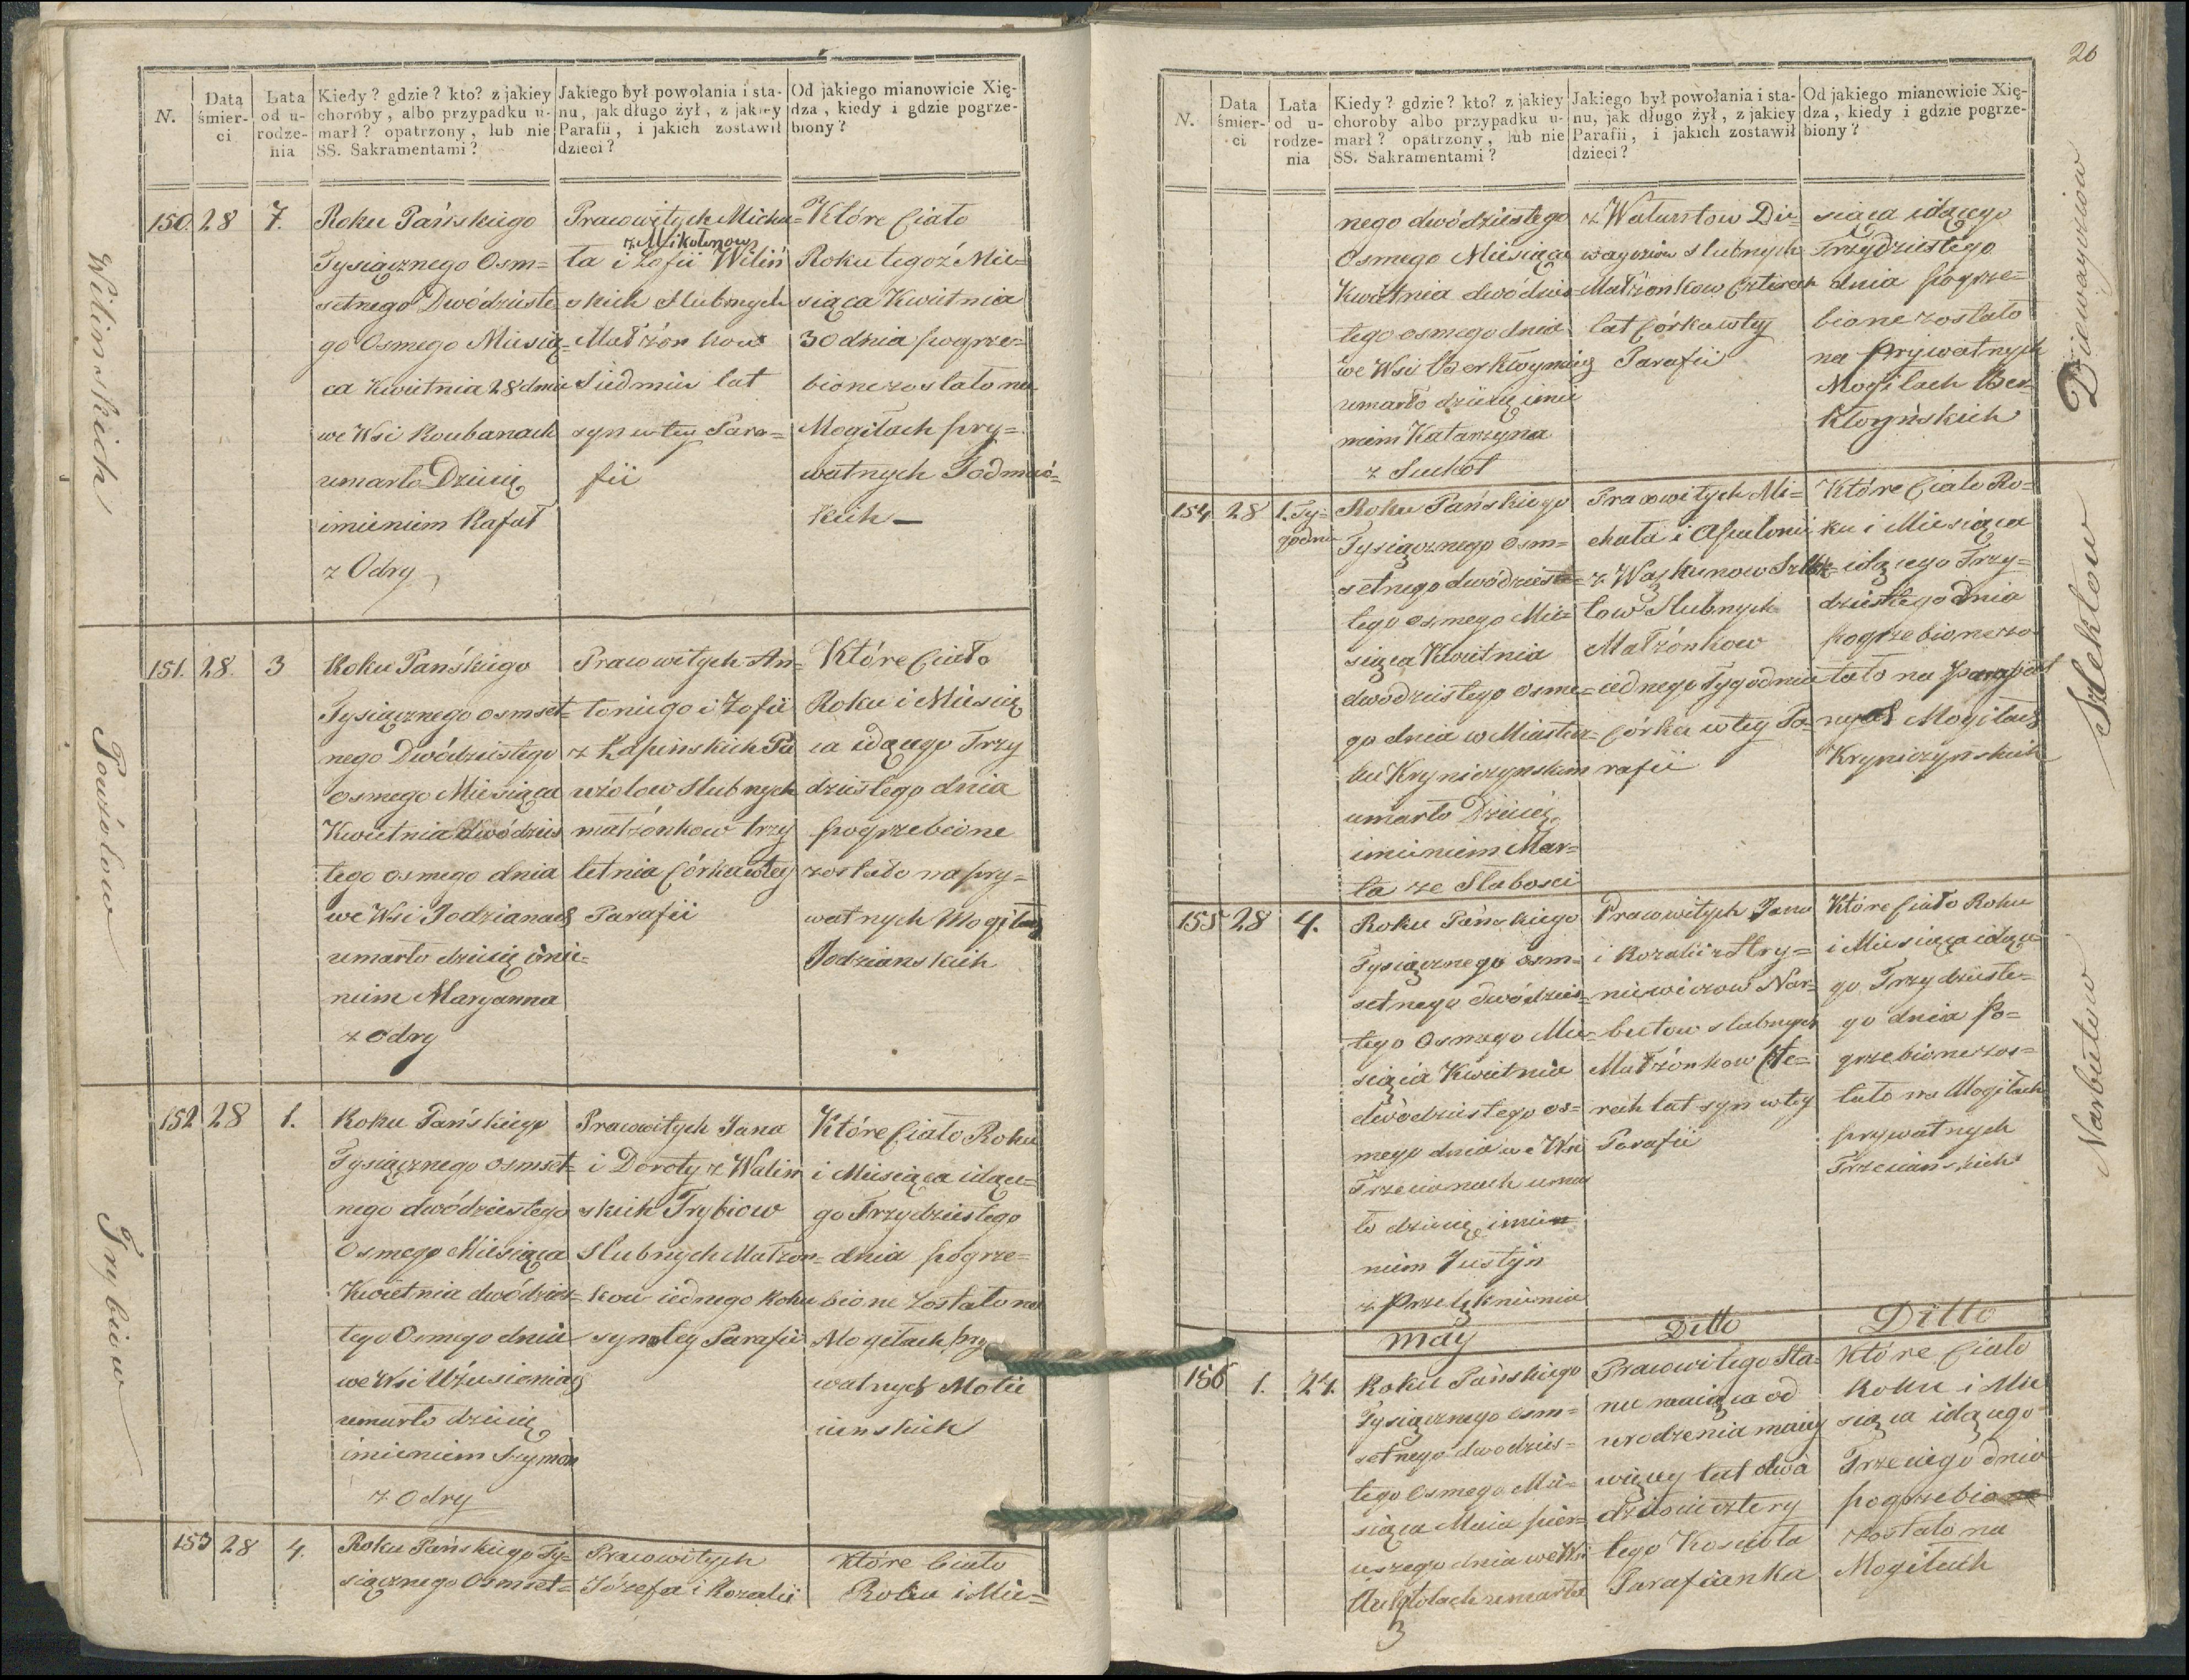 N.
Data śmier- ci
Lata od u- rodze- nia
Kiedy? gdzie? kto? z jakiey choroby, albo przypadku u- marł? opatrzony, lub nie SS. Sakramentami?
Jakiego był powołania i sta- nu, jak długo żył, z jakiey Parafii, i jakich zostawił dzieci?
Od jakiego mianowicie Xię- dza, kiedy i gdzie pogrze- biony?
150. 28 7.
Roku Pańskiego
Tysiącznego Osm=
setnego Dwódzieste
go Osmego Miesią=
ca Kwietnia 28 dnia
we Wsi Roubanach
umarło Dziecię
imieniem Rafał
z Odry
Pracowitych Micha=
z Mikołunow
ła i Zofii Wiliń
skich Slubnych
Małżonkow
Siedmiu lat
syn w tey Para=
fii
Które Ciało
Roku tegoż Mie=
siąca Kwietnia
30 dnia pogrze=
bione zostało na
Mogiłach pry=
watnych
Wilinskich
151. 28. 3
Roku Pańskiego
Tysiącznego osmset=
nego Dwódziestego
osmego Miesiąca
Kwietnia dwódzies
tego osmego dnia
we Wsi Jodzianach
umarło dziecię imie=
niem Maryanna
z odry
Pracowitych An=
toniego i Zofii
z Łapinskich Po
użolow Slubnych
małżonkow trzy
letnia Córka w tey
Parafii
Które Ciało
Roku i Miesią
ca idącego Trzy
dziestego dnia
pogrzebione
zostało na pry=
watnych Mogiłach
Jodzianskich
Powżolow
152 28 1.
Roku Pańskiego
Tysiącznego osmset=
nego dwódziestego
Osmego Miesiąca
Kwietnia dwódzies=
tego Osmego dnia
we Wsi Użusieniach
umarło dziecię
imieniem Szymon
z odry
Pracowitych Jana
i Doroty z Walin
skich Trybiow
Slubnych Małżon=
kow iednego Roku
syn tey Parafii
Które Ciało Roku
i Miesiąca idące=
go Trzydziestego
dnia pogrze=
bione zostało na
Mogiłach pry
watnych Motie
iunskich
Trybiow
153 28 4.
Roku Pańskiego Ty=
siącznego Osmset=
Pracowitych
Józefa i Rozalii
Które Ciało
Roku i Mie=
26
N.
Data śmier- ci
Lata od u- rodze- nia
Kiedy? gdzie? kto? z jakiey choroby albo przypadku u- marł? opatrzony, lub nie SS. Sakramentami?
Jakiego był powołania i sta- nu, jak długo żył, z jakiey Parafii, i jakich zostawił dzieci?
Od jakiego mianowicie Xię- dza, kiedy i gdzie pogrze- biony?
nego dwódziestego
Osmego Miesiąca
Kwietnia dwódzies
tego osmego dnia
we Wsi Berkłoyniach
umarło dziecię imie
niem Katarzyna
z Suchot
z Waluntow Die
wayziow slubnych
Małżonkow Czterech
lat Córka w tey
Parafii
siąca idącego
Trzydziestego
dnia pogrze=
bione zostało
na prywatnych
Mogiłach Ber
kłoyńskich
Diewayziow
154 28 1. Ty=
godnia
Roku Pańskiego
Tysiącznego osm=
setnego dwódzies=
tego osmego Mie=
siąca Kwietnia
dwódziestego osme=
go dnia w Miastecz=
ku Kryniczynskim
umarło Dziecię
imieniem Mar=
ta ze Słabosci
Pracowitych Mi=
chała i Apolonii
z Waszkunow Szlek=
tow Slubnych
Małżonkow
iednego Tygodnia
Córka w tey Pa=
rafii
Które Ciało Ro=
ku i Miesiąca
idącego Trzy=
dziestego Dnia
pogrzebione zos
tało na parafial
nych Mogiłach
Kryniczynskich
Szlektow
155 28 4.
Roku Pańskiego
Tysiącznego osm=
setnego dwódzies=
tego Osmego Mie=
siąca Kwietnia
dwódziestego os=
mego dnia we Wsi
Trzecianach umar
ło dziecię imie
niem Justyn
z Przelęknienia
Pracowitych Jana
i Rozalii z Stry=
niewiczow Nar=
butow slubnych
Małżonkow Czte=
rech lat syn w tey
Parafii
Które Ciało Roku
i Miesiąca idące=
go Trzydzieste=
go dnia po=
grzebione zos=
tało na Mogiłach
prywatnych
Trzecianskich
Narbutow
May
Ditto
Ditto
156 1. 24.
Roku Pańskiego
Tysiącznego osm=
setnego dwodzies=
tego Osmego Mie=
siąca Maia pier=
wszego dnia we Wsi
umarła
Pracowitego Sta=
nu maiąca od
urodzenia maiey
więcey lat dwa
dziescia cztery
tego Kosciola
Parafianka
Które Ciało
Roku i Mie
siąca idącego
Trzeciego dnia
pogrzebione
zostało na
Mogiłach